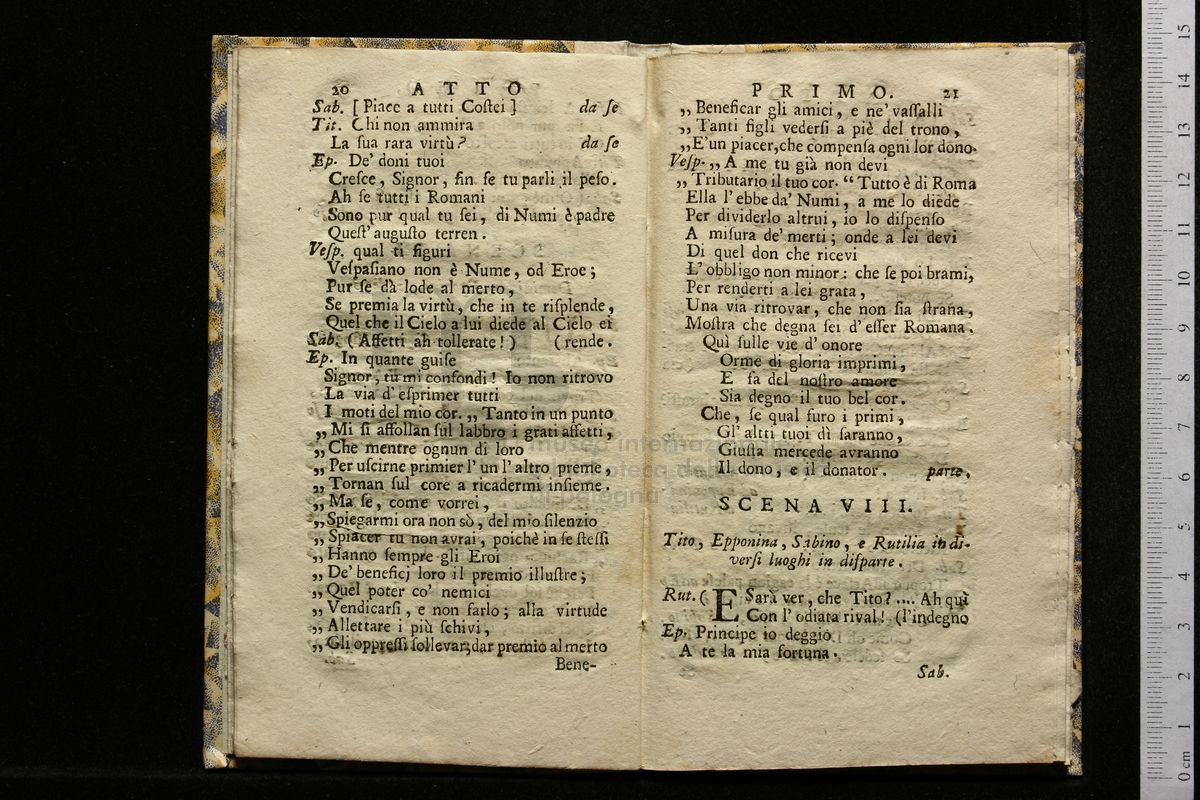 20 ATTO
Sab. [ Piace a tutti Coſtei ] da ſe
Tit. Chi non ammira
La ſua rara virtù? da ſe
Ep. De' doni tuoi
Creſce, Signor, fin ſe tu parli il peſo.
Ah ſe tutti i Romani
Sono pur qual tu ſei, di Numi è padre
Queſt' auguſto terren.
Veſp. qual ti figuri
Veſpaſiano non è Nume, od Eroe;
Pur ſe dà lode al merto,
Se premia la virtù, che in te riſplende,
Quel che il Cielo a lui diede al Cielo ei
Sab. (Affetti ah tollerate!) (rende.
Ep. In quante guiſe
Signor, tu mi confondi! Io non ritrovo
La via d' eſprimer tutti
I moti del mio cor. „ Tanto in un punto
„ Mi ſi affollan ſul labbro i grati affetti,
„ Che mentre ognun di loro
„ Per uſcirne primier l' un l' altro preme,
„ Tornan ſul core a ricadermi inſieme.
„ Ma ſe, come vorrei,
„ Spiegarmi ora non sò, del mio ſilenzio
„ Spiacer tu non avrai, poichè in ſe ſteſſi
„ Hanno ſempre gli Eroi
„ De' beneficj loro il premio illuſtre;
„ Quel poter co' nemici
„ Vendicarſi, e non farlo; alla virtude
„ Allettare i più ſchivi,
„ Gli oppreſſi ſollevar; dar premio al merto
Bene-
PRIMO. 21
„ Beneficar gli amici, e ne' vaſſalli
„ Tanti figli vederſi a piè del trono,
„ E'un piacer, che compenſa ogni lor dono.
Veſp. „ A me tu già non devi
„ Tributario il tuo cor. “ Tutto è di Roma
Ella l' ebbe da' Numi, a me lo diede
Per dividerlo altrui, io lo diſpenſo
A miſura de' merti; onde a lei devi
Di quel don che ricevi
L' obbligo non minor: che ſe poi brami,
Per renderti a lei grata,
Una via ritrovar, che non ſia ſtrana,
Moſtra che degna ſei d' eſſer Romana.
Quì ſulle vie d' onore
Orme di gloria imprimi,
E fa del noſtro amore
Sia degno il tuo bel cor.
Che, ſe qual furo i primi,
Gl' altti tuoi dì ſaranno,
Giuſta mercede avranno
Il dono, e il donator. parte.
SCENA VIII.
Tito, Epponina, Sabino, e Rutilia in di-
verſi luoghi in diſparte.
Rut. ( E Sarà ver, che Tito? .... Ah quì
Con l' odiata rival! (l'indegno
Ep. Principe io deggio
A te la mia fortuna.
Sab.
museo internazionale
0 cm 1 2 3 4 5 6 7 8 9 10 11 12 13 14 15